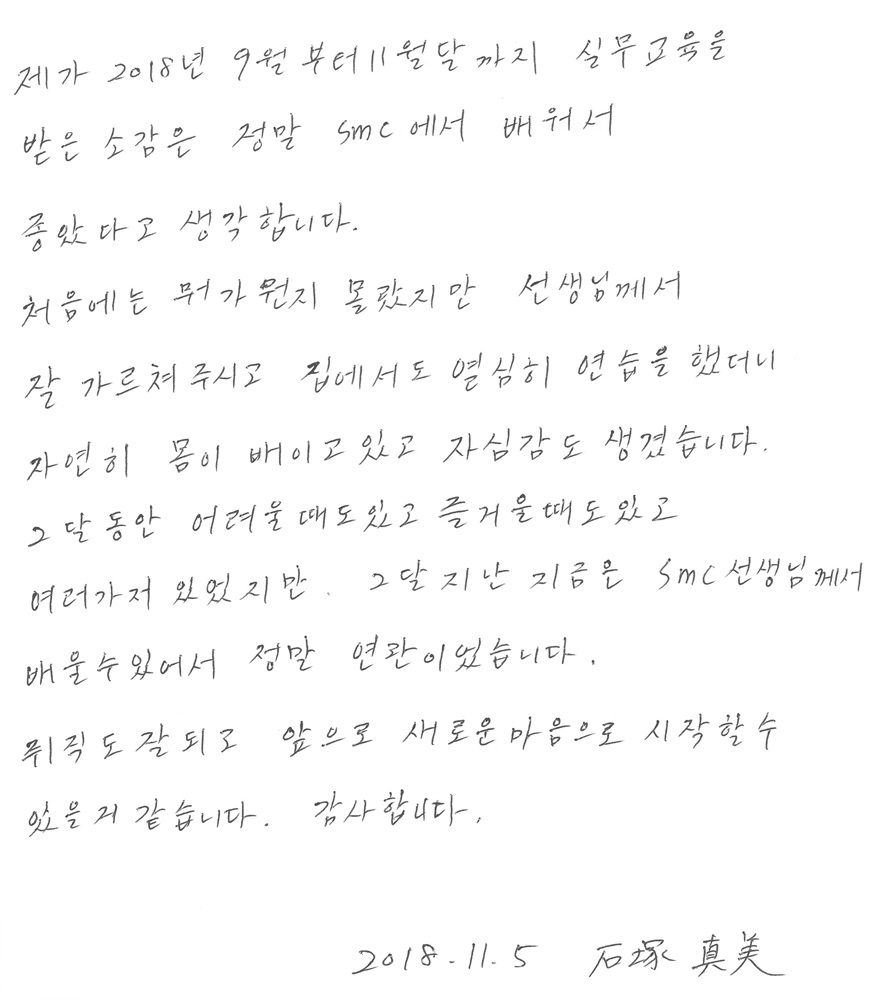 제가 2018년 9월부터 11월달까지 실무교육을
받은 소감은 정말 smc에서 배워서
좋았다고 생각합니다.
처음에는 뭐가 뭔지 몰랐지만 선생님께서
잘 가르쳐주시고 집에서도 열심히 연습을 했더니
자연히 몸이 배이고있고 자심감도 생겼습니다.
2달동안 어려울때도있고 즐거울때도있고
여러가저 있었지만. 2달지난 지금은 smc선생님께서
배울수있어서 정말 연관이었습니다.
취직도잘되고 앞으로 새로운마음으로 시작할수
있을거 같습니다. 감사합니다.
2018.11.5 石塚 真美